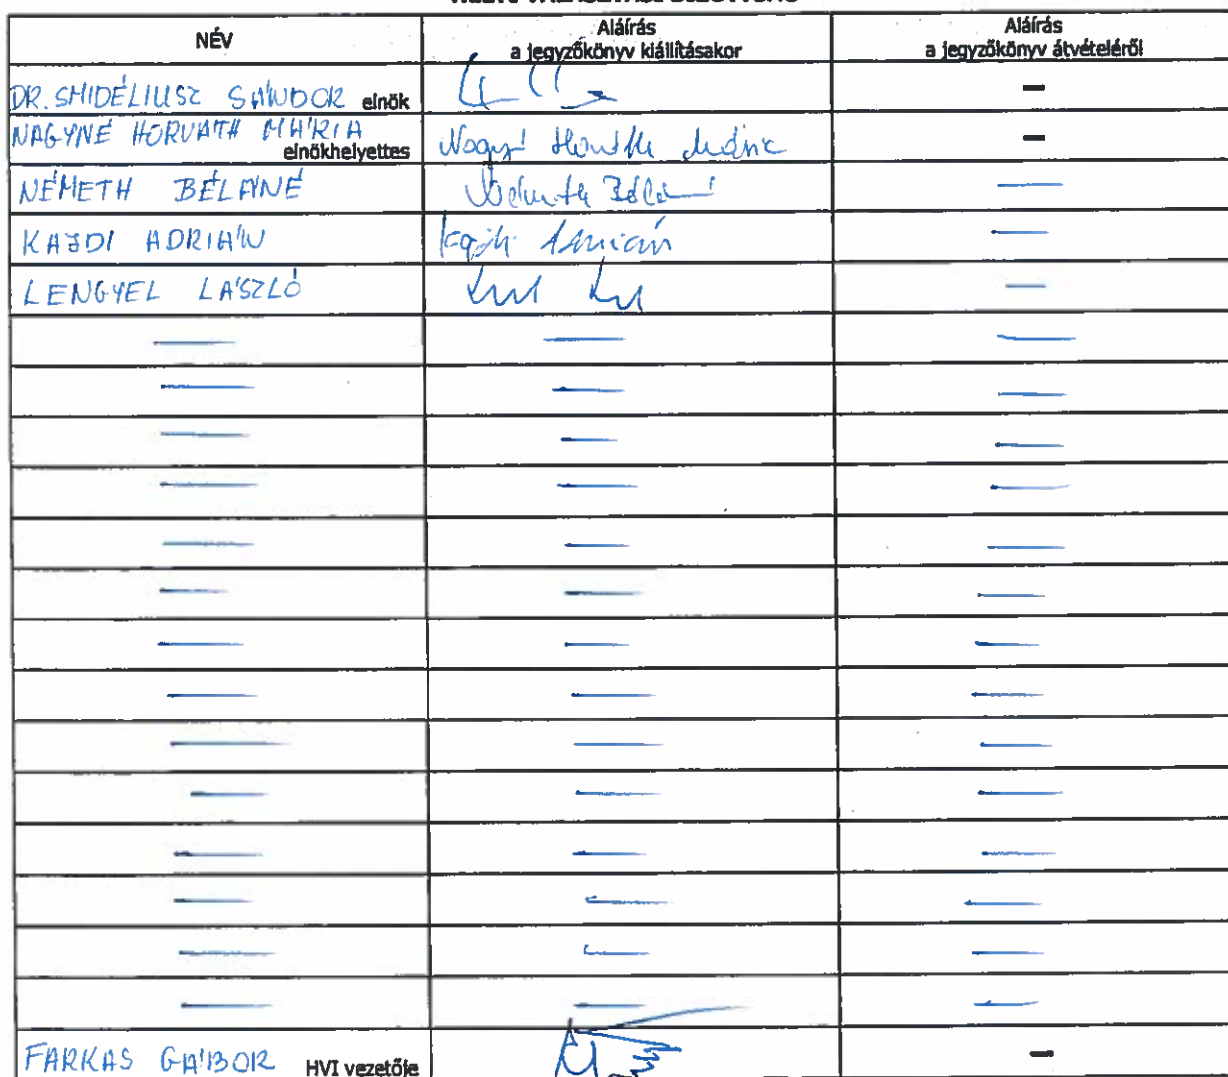 HELYI VÁLASZTÁSI BIZOTTSÁG
NÉV
Aláírás
a jegyzőkönyv kiállításakor
Aláírás
a jegyzőkönyv átvételéről
DR. SMIDÉLIUSZ SÁNDOR elnök
NAGYNÉ HORVÁTH MÁRIA
elnökhelyettes
Nagyné Horváth Mária
NÉMETH BÉLÁNÉ
Németh Béláné
KAJDI ADRIÁN
Kajdi Adrián
LENGYEL LÁSZLÓ
FARKAS GÁBOR HVI vezetője